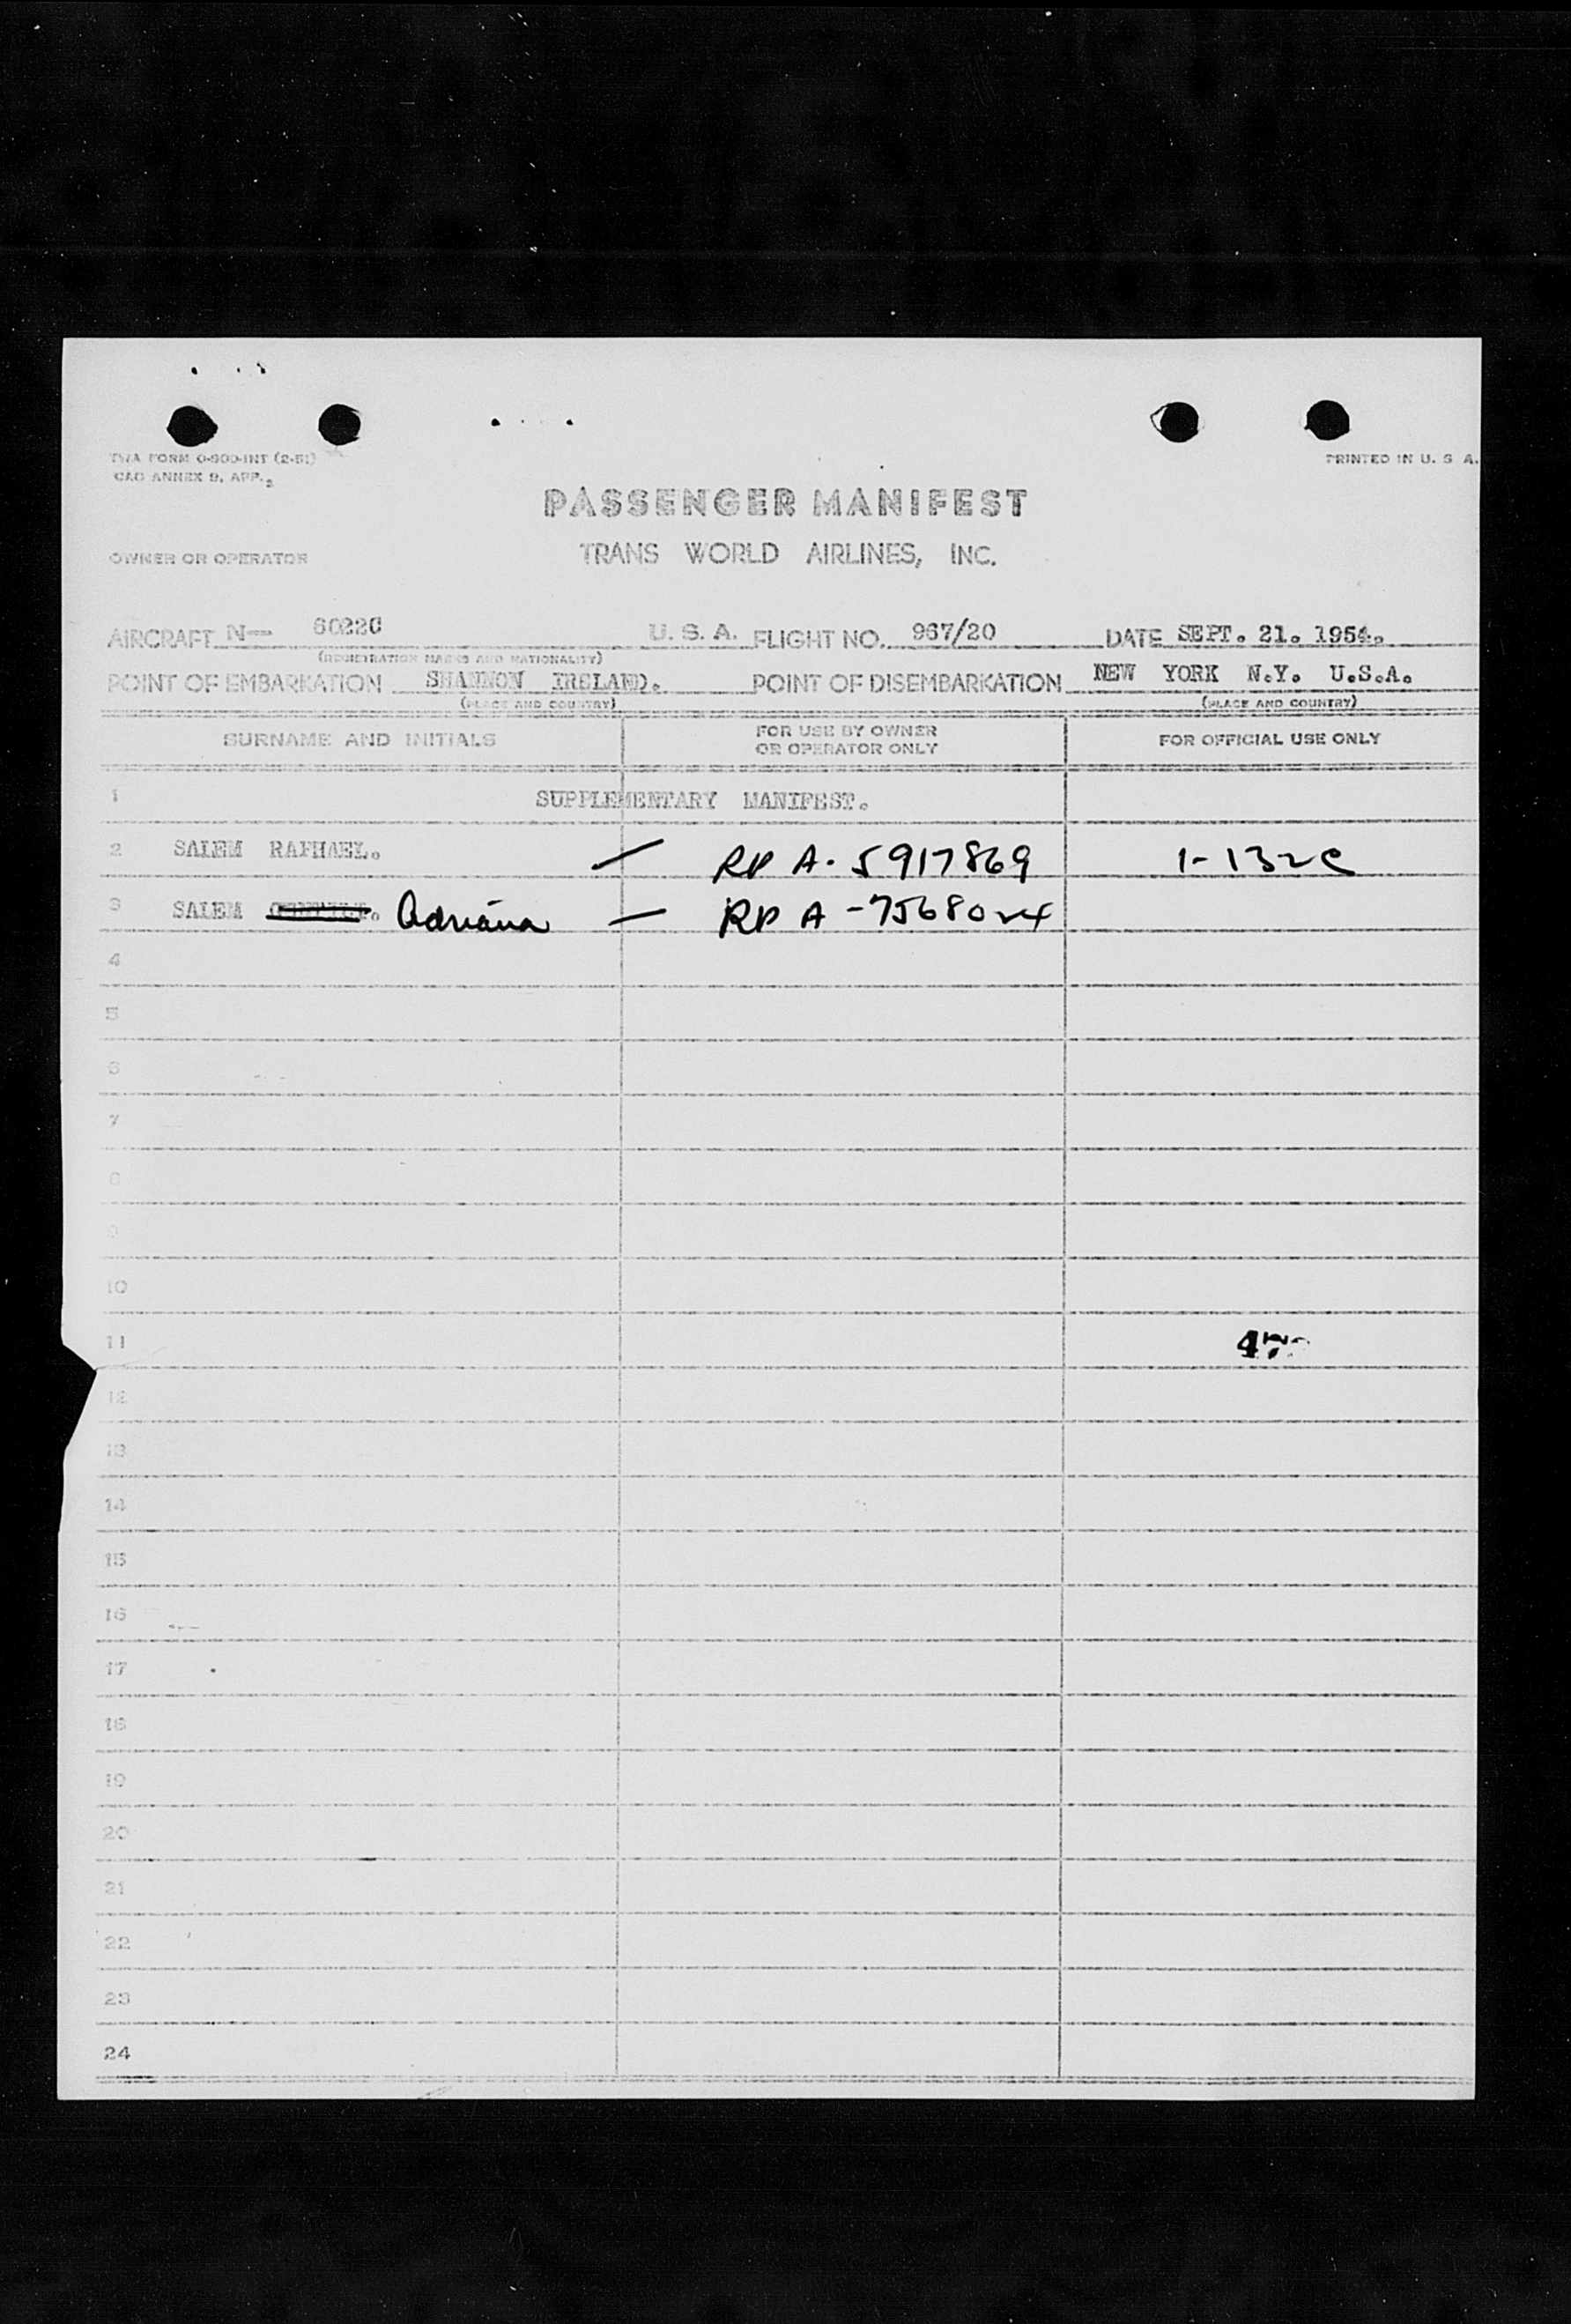 TWA FORM 0-900-INT (2-51)
PRINTED IN U. S A.
CAO ANNEX 9, APP. 2
PASSENGER MANIFEST
OWNER OR OPERATOR TRANS WORLD AIRLINES, INC.
AIRCRAFT N— 60220 U. S. A. FLIGHT NO. 967/20 DATE SEPT. 21. 1954.
(REGISTRATION MARKS AND NATIONALITY)
POINT OF EMBARKATION SHANNON IRELAND. POINT OF DISEMBARKATION NEW YORK N.Y. U.S.A.
(PLACE AND COUNTRY) (PLACE AND COUNTRY)
SURNAME AND INITIALS FOR USE BY OWNER OR OPERATOR ONLY FOR OFFICIAL USE ONLY
1 SUPPLEMENTARY MANIFEST.
2 SALEM RAPHAEL. — RP A- 5917869 1-132c
3 SALEM Adriana — RP A -7568024
4
5
6
7
8
9
10
11
12
13
14
15
16
17
18
19
20
21
22
23
24